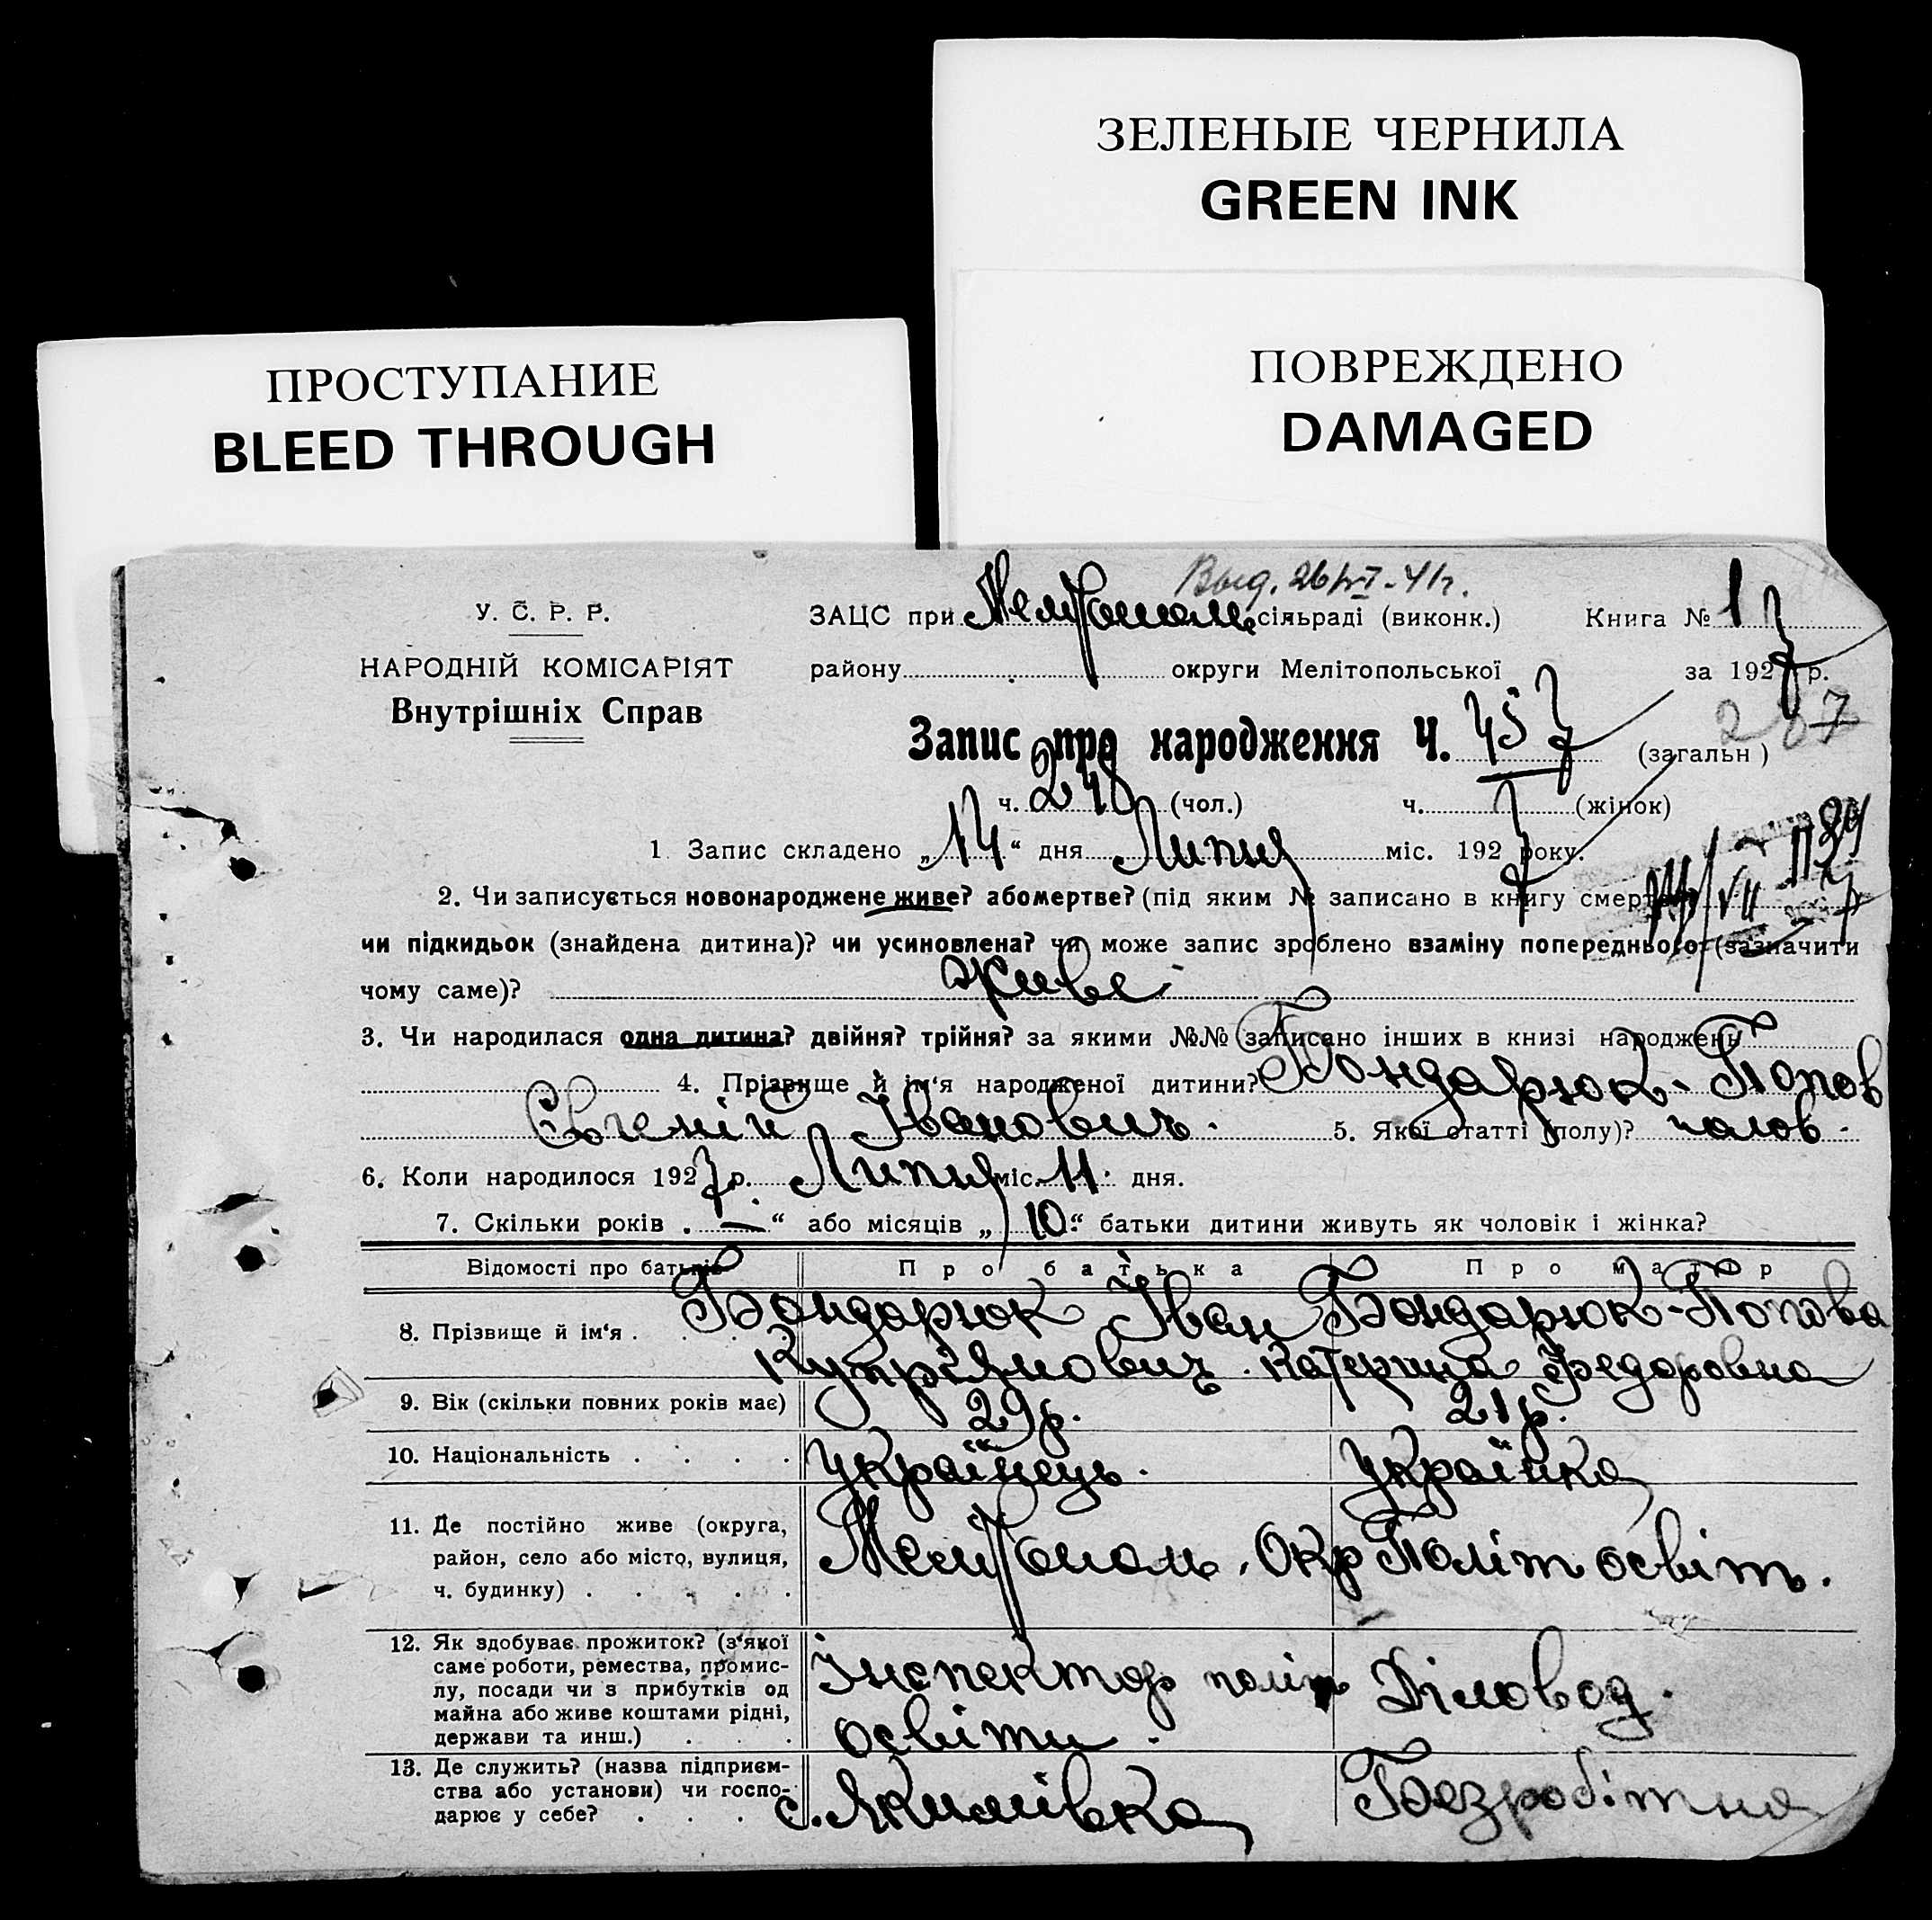 ЗЕЛЕНЫЕ ЧЕРНИЛА
GREEN INK
ПОВРЕЖДЕНО
DAMAGED
ПРОСТУПАНИЕ
BLEED THROUGH
У. С. Р. Р.
НАРОДНІЙ КОМІСАРІЯТ
Внутрішніх Справ
Выд. 26/VI-41г.
ЗАЦС при Мелітополь сільраді (виконк.) Книга № 1
району округи Мелітопольської за 1927 р.
Запис про народження Ч. 457 (загальн)
287
ч. 240 (чол.) ч. (жінок)
1 Запис складено „14“ дня Липня міс. 1927 року.
2. Чи записується новонароджене живе? абомертве? (під яким № записано в книгу смерт
чи підкидьок (знайдена дитина)? чи усиновлена? чи може запис зроблено взаміну попереднього (зазначити
чому саме)? живе
3. Чи народилася одна дитина? двійня? трійня? за якими №№ записано інших в книзі народжень
4. Прізвище й ім‘я народженої дитини? Бондарюк-Попов
Євгеній Іванович. 5. Якої статті (полу)? чолов.
6. Коли народилося 1927 р. Липня міс. 11 дня.
7. Скільки років „—“ або місяців „10“ батьки дитини живуть як чоловік і жінка?
Відомості про батьків Про батька Про матір
8. Прізвище й ім‘я . Бондарюк Іван Бондарюк-Попова
Купріянович. Катерина Федоровна
9. Вік (скільки повних років має) 29 р. 21 р.
10. Національність . . . . українець. українка
11. Де постійно живе (округа,
район, село або місто, вулиця,
ч. будинку) . . . . .
Мелітополь, Окр Політосвіт.
12. Як здобуває прожиток? (з‘якої
саме роботи, ремества, промис-
лу, посади чи з прибутків од
майна або живе коштами рідні,
держави та инш.) . . .
Інспектор політ
освіти.
Діловод.
13. Де служить? (назва підприєм-
ства або установи) чи госпо-
дарює у себе? . . .
с. Якимівка
Безробітна